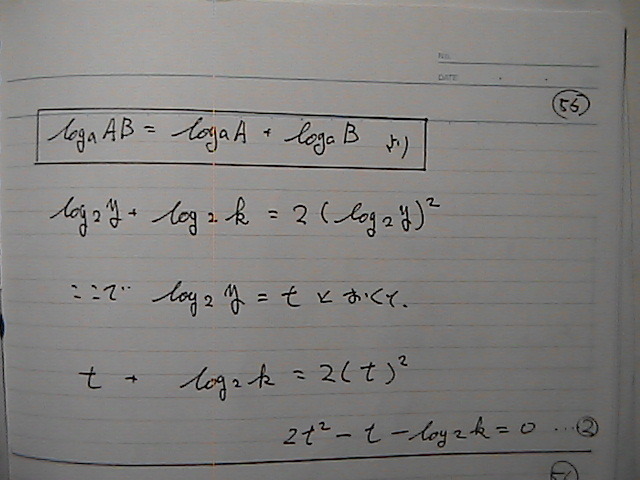 NO.
DATE
55
log_a AB = log_a A + log_a B より
log_2 y + log_2 k = 2(log_2 y)^2
ここで log_2 y = t とおくと.
t + log_2 k = 2(t)^2
2t^2 - t - log_2 k = 0 … ②